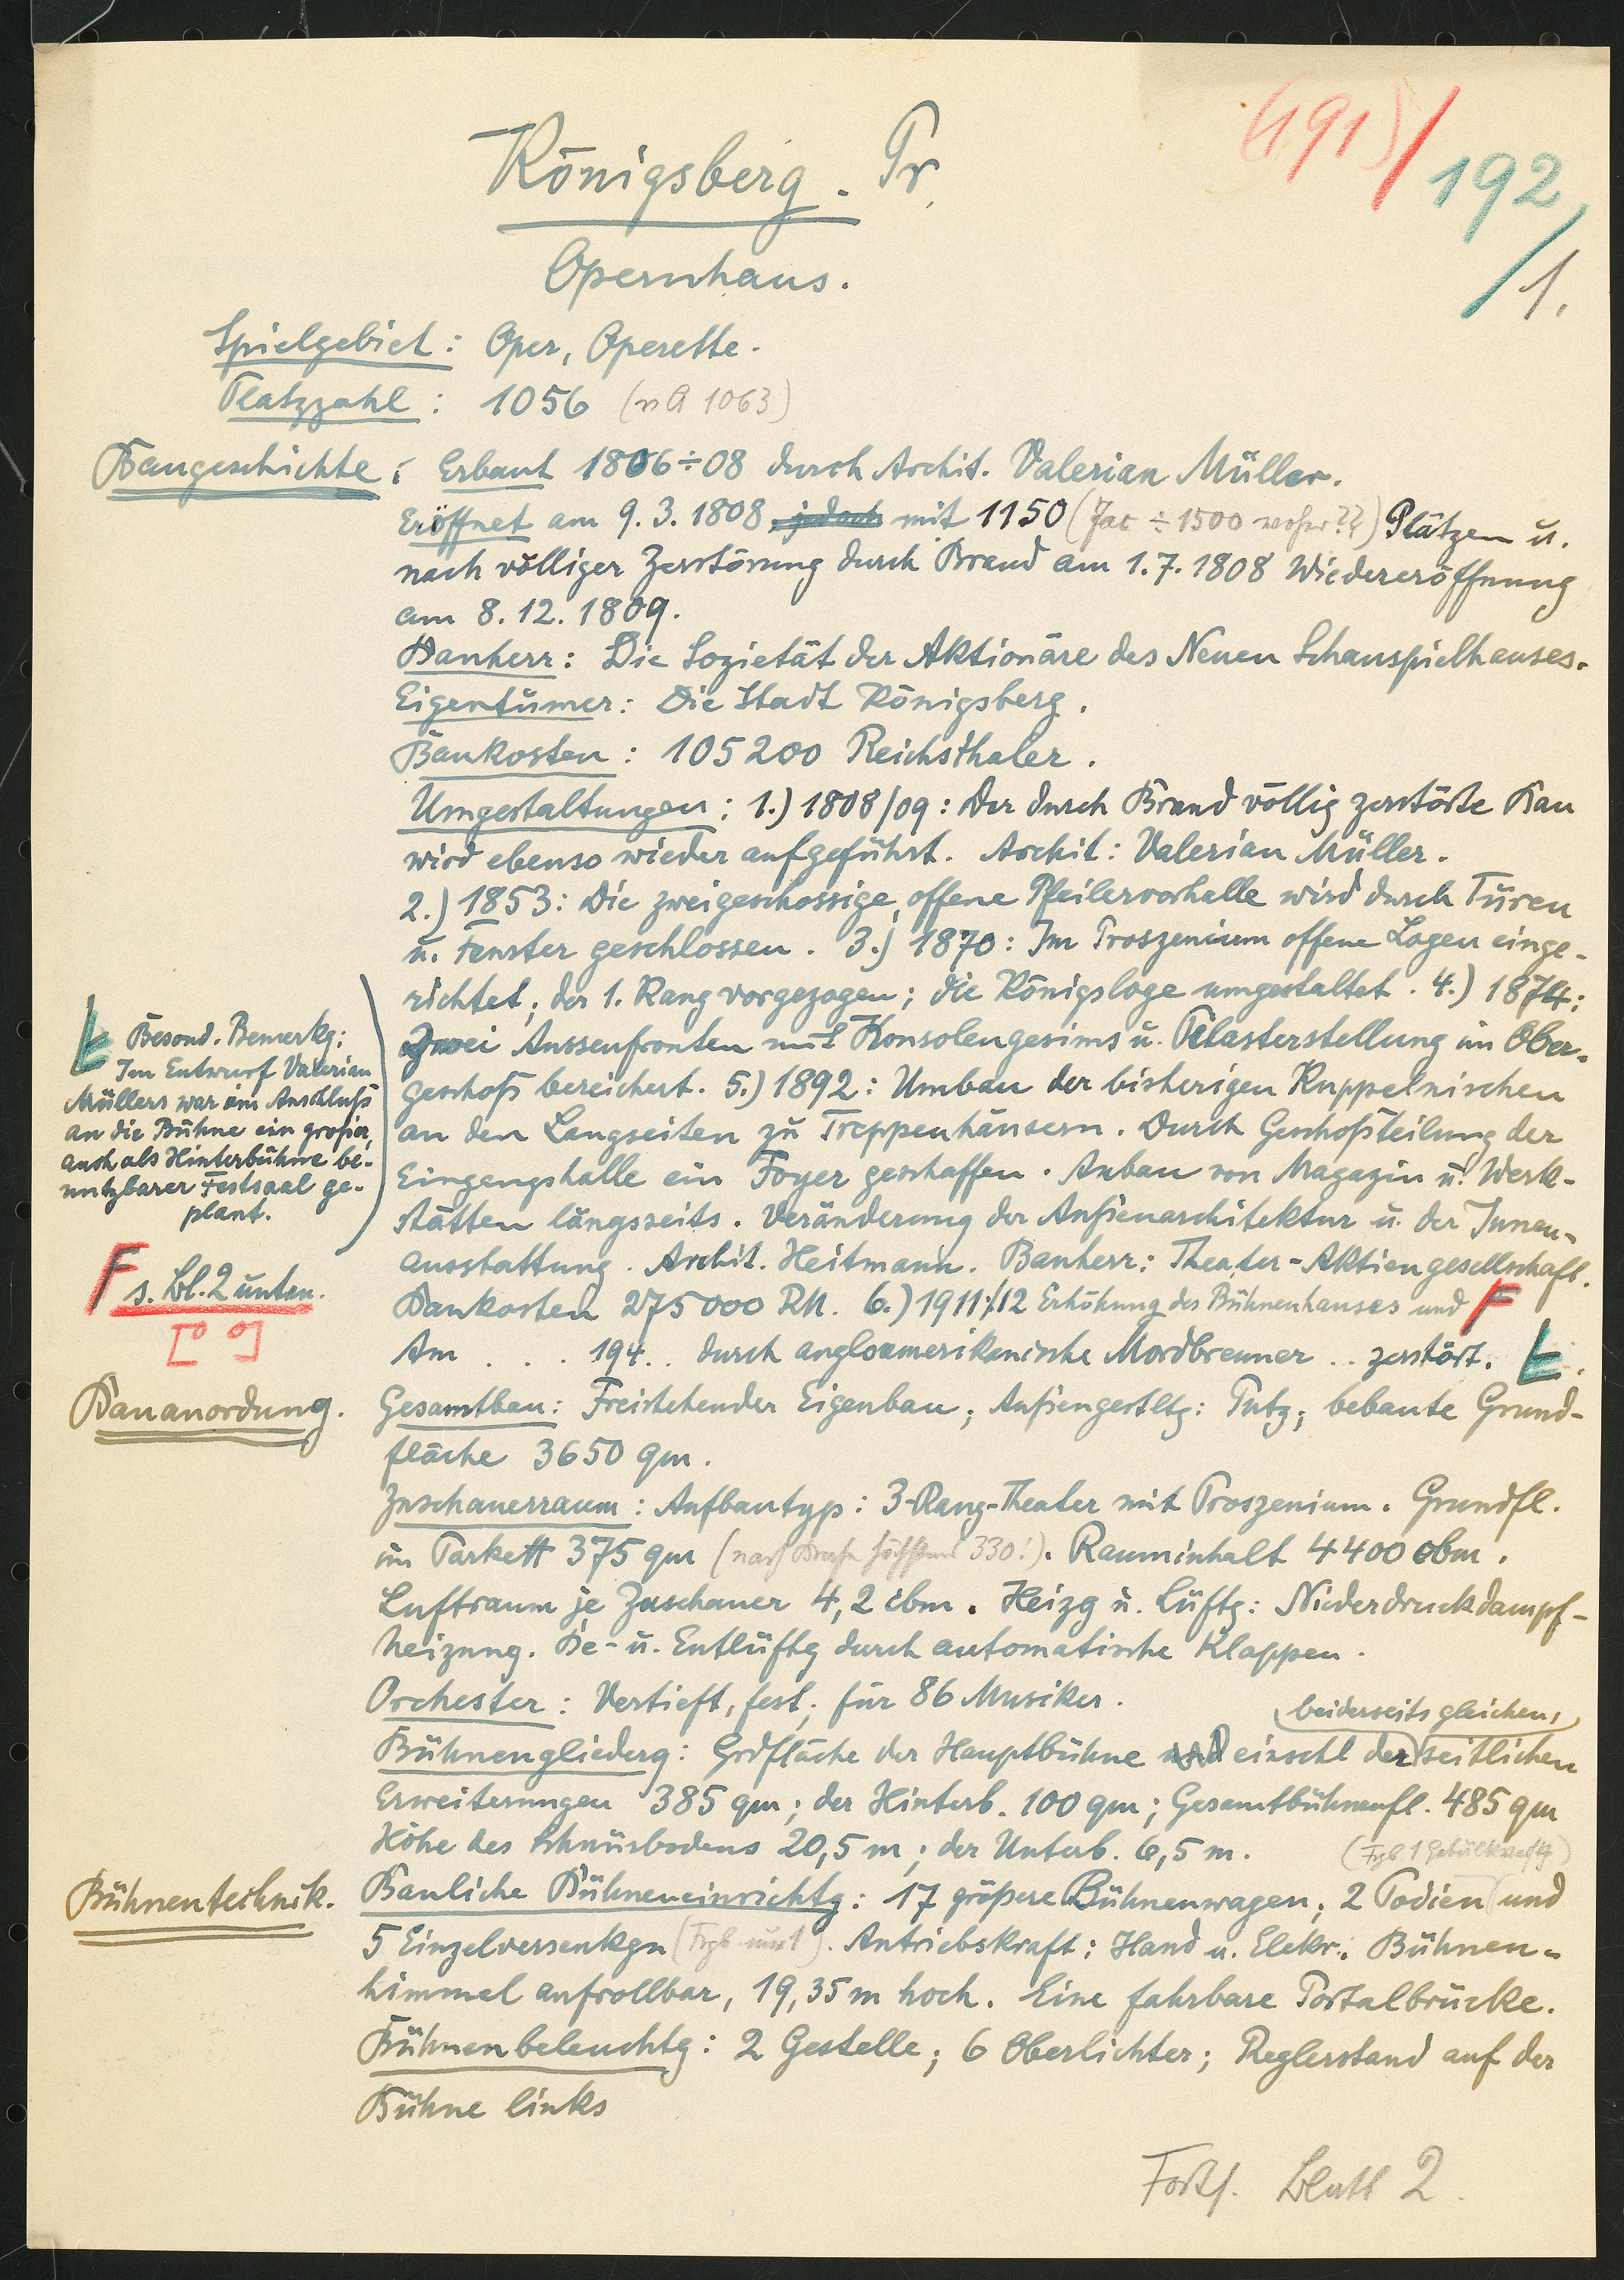 (191)/
192/
1.
Königsberg. Pr.
Opernhaus.
Spielgebiet: Oper, Operette.
Platzzahl: 1056 (nA 1063)
Baugeschichte: Erbaut 1806÷08 durch Archit. Valerian Müller.
Eröffnet am 9.3.1808 jedoch mit 1150 (Jac ÷ 1500 woher??) Plätzen u.
nach völliger Zerstörung durch Brand am 1.7.1808 Wiedereröffnung
am 8.12.1809.
Bauherr: Die Sozietät der Aktionäre des Neuen Schauspielhauses.
Eigentümer: Die Stadt Königsberg.
Baukosten: 105200 Reichsthaler.
Umgestaltungen: 1.) 1808/09: Der durch Brand völlig zerstörte Bau
wird ebenso wieder aufgeführt. Archit: Valerian Müller.
2.) 1853: Die zweigeschossige, offene Pfeilervorhalle wird durch Türen
u. Fenster geschlossen. 3.) 1870: Im Proszenium offene Logen einge-
richtet; der 1. Rang vorgezogen; die Königsloge umgestaltet. 4.) 1874:
Zwei Aussenfronten mit Konsolengesims u. Pilasterstellung im Ober-
geschoß bereichert. 5.) 1892: Umbau der bisherigen Kuppelnischen
an den Langseiten zu Treppenhäusern. Durch Geschoßteilung der
Eingangshalle ein Foyer geschaffen. Anbau von Magazin u. Werk-
stätten längsseits. Veränderung der Außenarchitektur u. der Innen-
ausstattung. Archit. Heitmann. Bauherr: Theater-Aktiengesellschaft.
Baukosten 275000 RM. 6.) 1911/12 Erhöhung des Bühnenhauses und F
Am . . . 194.. durch angloamerikanische Mordbrenner .. zerstört.
Besond. Bemerkg:
Im Entwurf Valerian
Müllers war im Anschluß
an die Bühne ein großer,
auch als Hinterbühne be-
nutzbarer Festsaal ge-
plant.
F s. Bl. 2 unten.
Bauanordnung. Gesamtbau: Freistehender Eigenbau; Außengestltg: Putz; bebaute Grund-
fläche 3650 qm.
Zuschauerraum: Aufbautyp: 3-Rang-Theater mit Proszenium. Grundfl.
im Parkett 375 qm (nach höchstens 330!). Rauminhalt 4400 cbm.
Luftraum je Zuschauer 4,2 cbm. Heizg u. Lüftg: Niederdruckdampf-
heizung. Be- u. Entlüftg durch automatische Klappen.
Orchester: Vertieft, fest; für 86 Musiker.
beiderseits gleichen,
Bühnengliederg: Grdfläche der Hauptbühne und einschl der seitlichen
Erweiterungen 385 qm; der Hinterb. 100 qm; Gesamtbühnenfl. 485 qm
Höhe des Schnürbodens 20,5 m; der Unterb. 6,5 m.
Bühnentechnik. Bauliche Bühneneinrichtg: 17 größere Bühnenwagen; 2 Podien und
5 Einzelversenkgn (Frgb nur 1). Antriebskraft: Hand u. Elektr. Bühnen-
himmel aufrollbar, 19,35 m hoch. Eine fahrbare Portalbrücke.
Bühnenbeleuchtg: 2 Gestelle; 6 Oberlichter; Reglerstand auf der
Bühne links
Forts. Blatt 2.